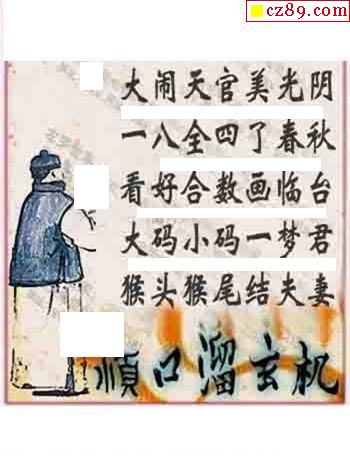 cz89.com
大闹天官美光阴
一八全四了春秋
看好合数画临台
大码小码一梦君
猴头猴尾结夫妻
順口溜玄机